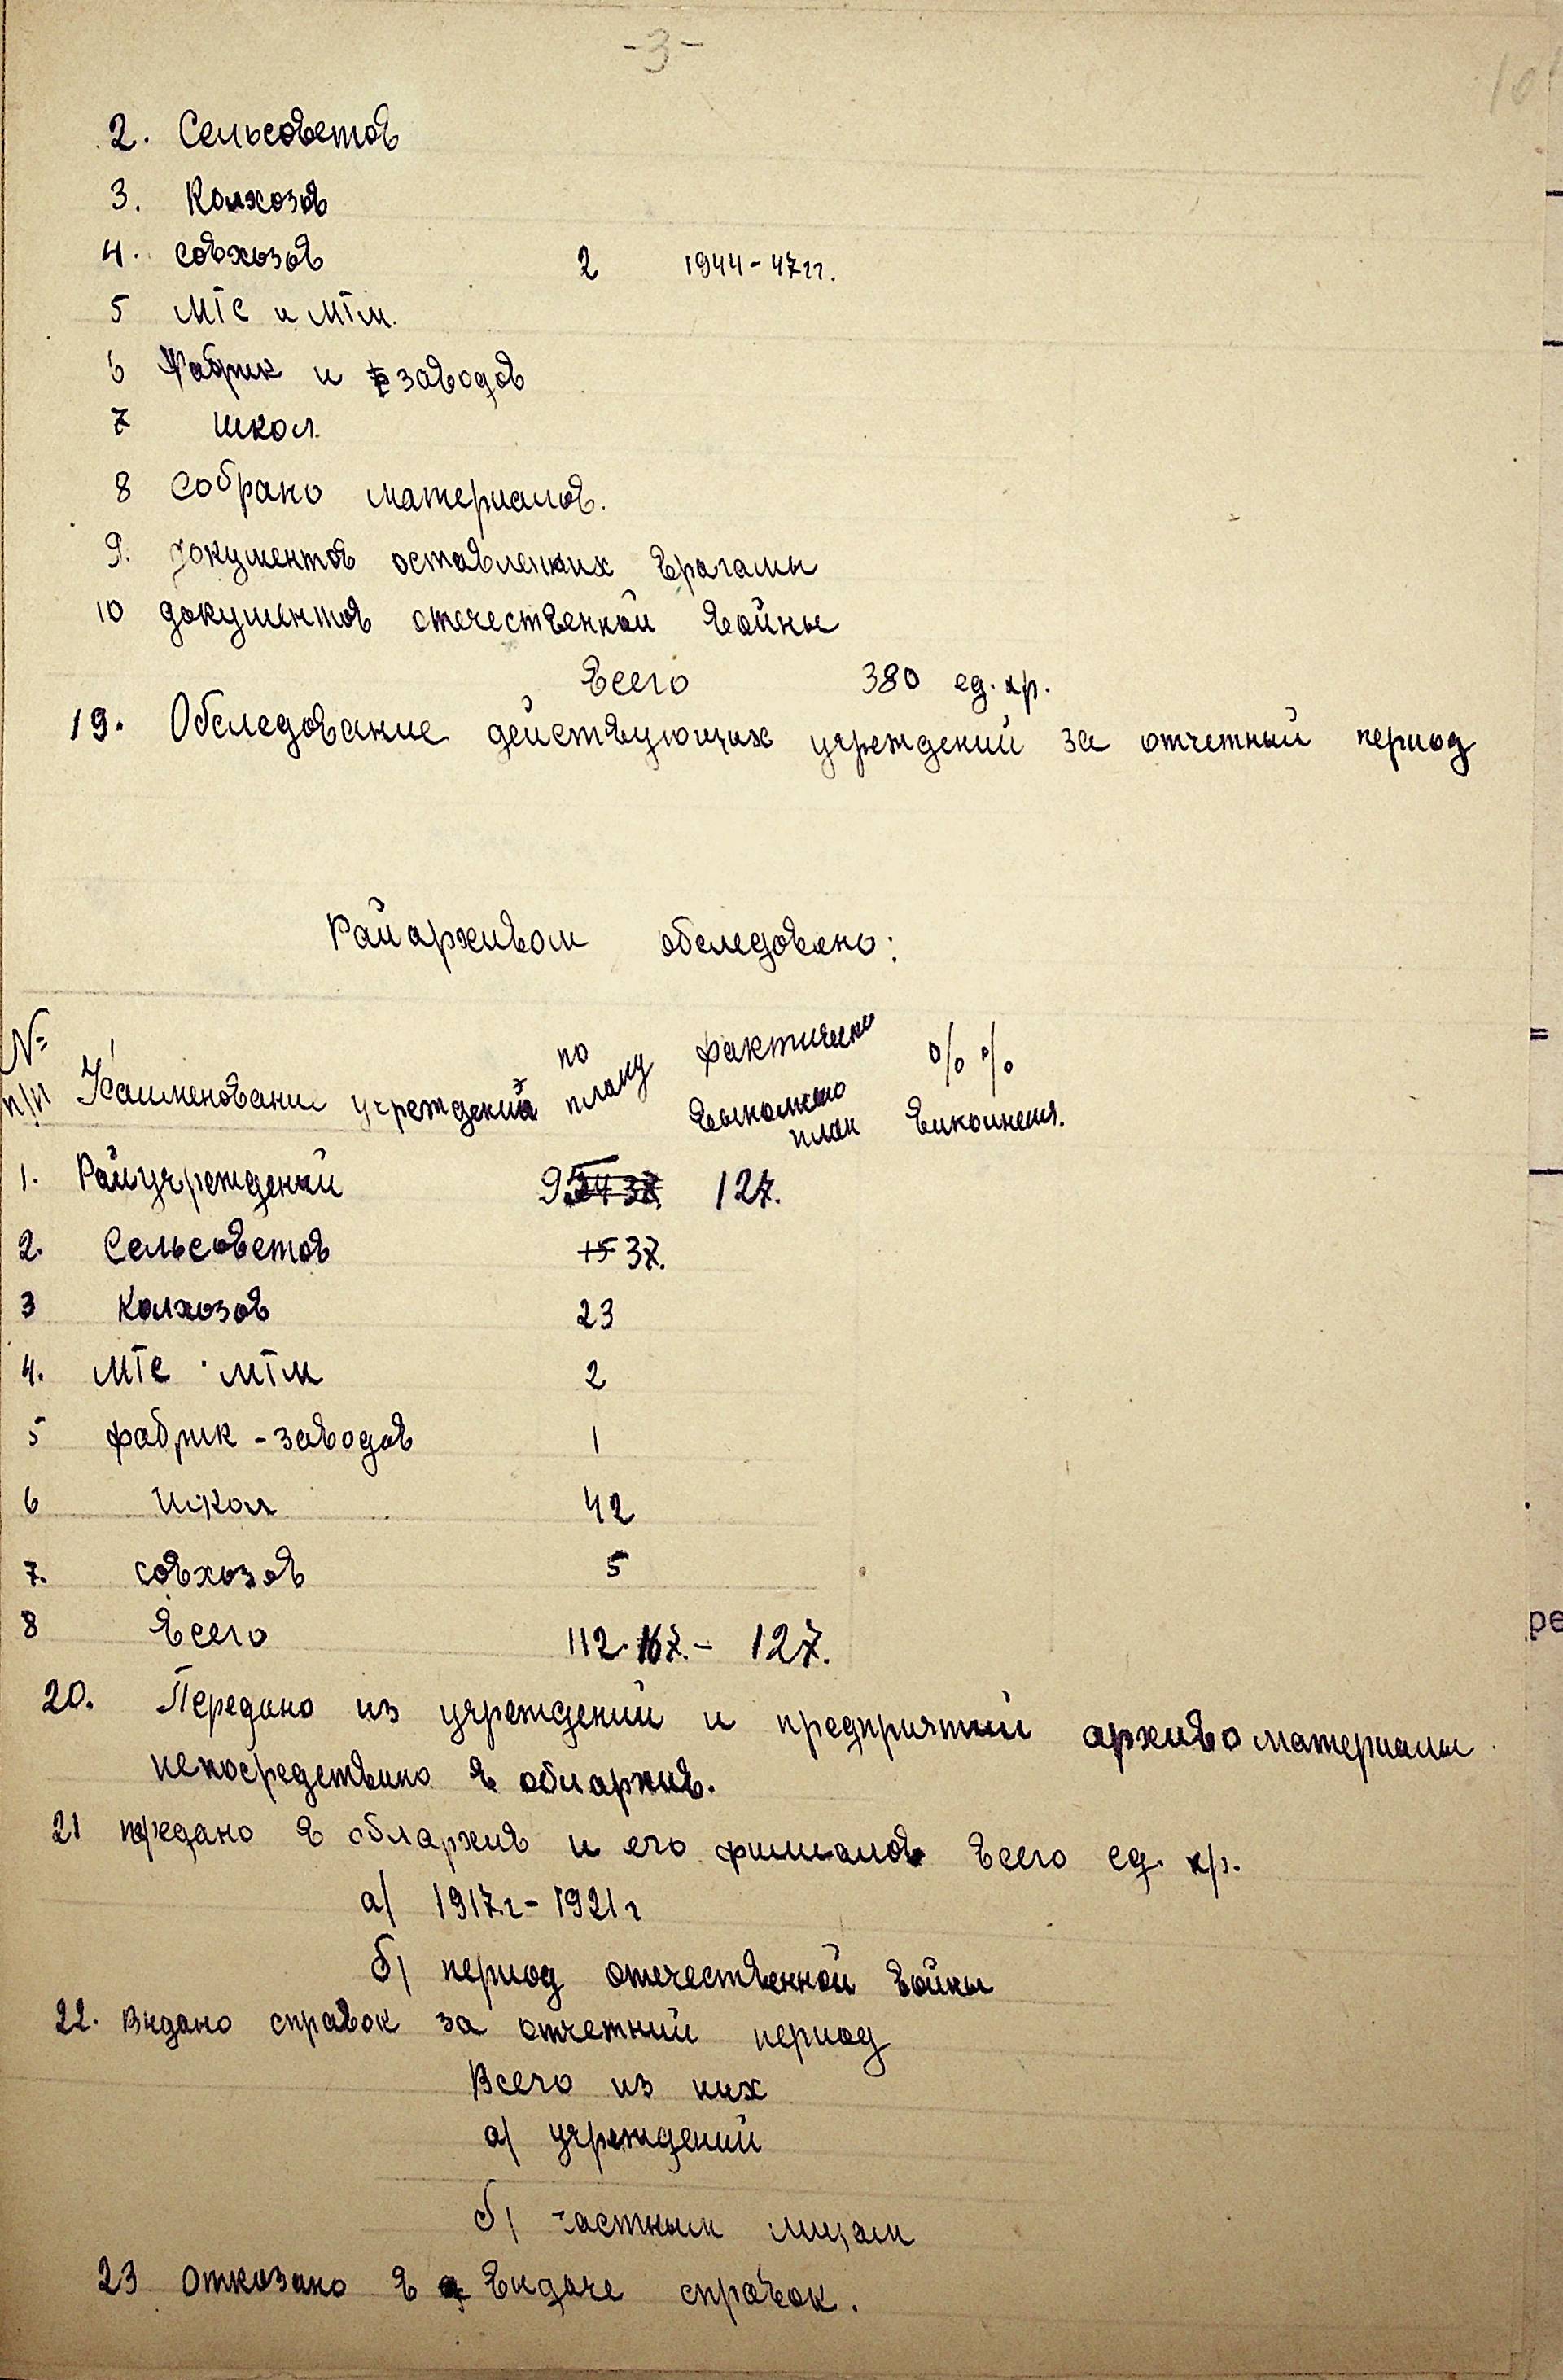 -3-
2. Сельсоветов
3. Колхозов
4. совхозов 2 1944-47гг.
5 МТС и МТМ.
6 Фабрик и заводов
7 школ.
8 Собрано материалов.
9. документов оставленных врагами
10 документов отечественной войны
Всего 380 ед. хр.
19. Обследование действующих учреждений за отчетный период
Райархивом обследовано:
№ п/п Наименование учреждений по плану фактически выполнено план %% викпонения.
1. Райучреждений 95 127.
2. Сельсоветов 15 37.
3 Колхозов 23
4. МТС МТМ 2
5 фабрик - заводов 1
6 Школ 42
7. совхозов 5
8 Всего 112. 167. - 127.
20. Передано из учреждений и предприятий архивоматериалы
непосредственно в облархив.
21 передано в облархив и его филиалов всего ед. хр.
а) 1917г - 1921г
б) период отечественной войны
22. Видано справок за отчетний период
Всего из них
а) учреждений
б) частным лицам
23 Отказано в видаче справок.
ре